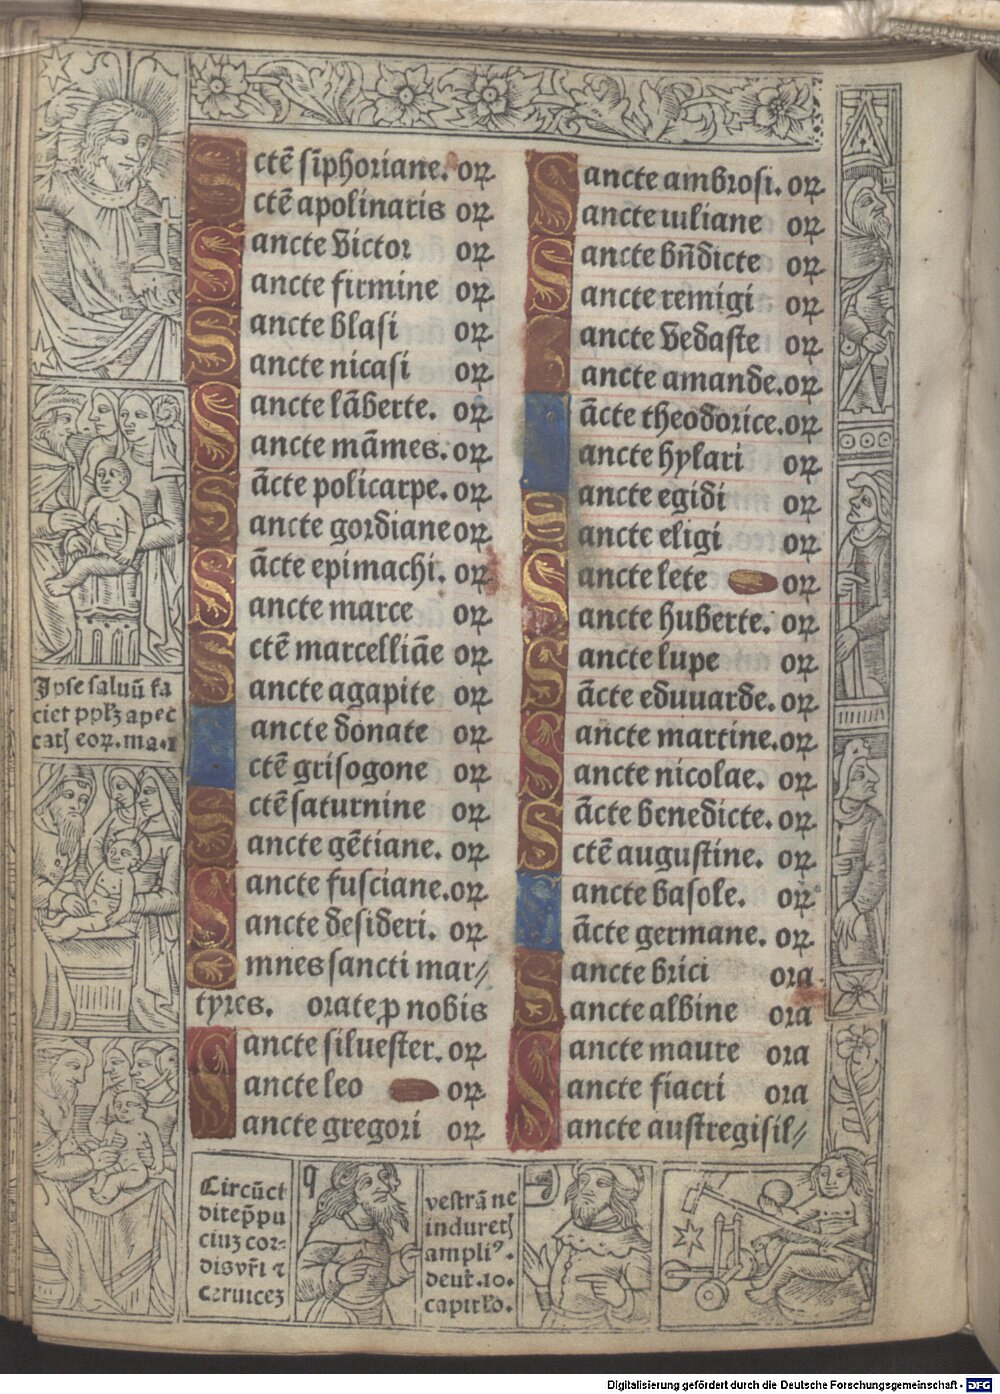 Sctē siphoriane. oꝝ
Sctē apolinaris oꝝ
Sancte victor oꝝ
Sancte firmine oꝝ
Sancte blasi oꝝ
Sancte nicasi oꝝ
Sancte lāberte. oꝝ
Sancte māmes. oꝝ
Sācte policarpe. oꝝ
Sancte gordiane oꝝ
Sācte epimachi. oꝝ
Sancte marce oꝝ
Sctē marcelliāe oꝝ
Sancte agapite oꝝ
ancte donate oꝝ
ctē grisogone oꝝ
Sctē saturnine oꝝ
Sancte gētiane. oꝝ
Sancte fusciane. oꝝ
Sancte desideri. oꝝ
Omnes sancti mar//
tyres. orate ꝓ nobis
Sancte siluester. oꝝ
Sancte leo oꝝ
Sancte gregori oꝝ
Sancte ambrosi. oꝝ
Sancte iuliane oꝝ
Sancte bn̄dicte oꝝ
Sancte remigi oꝝ
Sancte vedaste oꝝ
Sancte amande. oꝝ
ācte theodorice. oꝝ
ancte hylari oꝝ
Sancte egidi oꝝ
Sancte eligi oꝝ
Sancte lete oꝝ
Sancte huberte. oꝝ
Sancte lupe oꝝ
Sācte eduuarde. oꝝ
Sancte martine. oꝝ
Sancte nicolae. oꝝ
Sācte benedicte. oꝝ
Sctē augustine. oꝝ
ancte basole. oꝝ
ācte germane. oꝝ
Sancte brici ora
Sancte albine ora
Sancte maure ora
Sancte fiacri ora
Sancte austregisil//
Ipse saluū fa
ciet pplꝫ a pec
catꝭ eoꝝ. ma. 1
Circūci
dite p̄pu
ciuꝫ cor=
dis vr̄i ⁊
ceruiceꝫ
vestrā ne
induretꝭ
ampliꝰ.
deut. 10.
capitło.
Digitalisierung gefördert durch die Deutsche Forschungsgemeinschaft - DFG